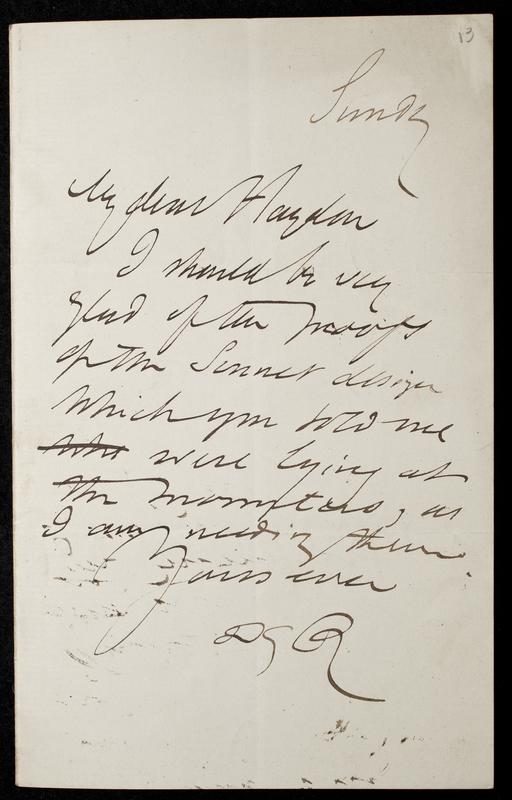 13
Sundy
My dear Haydon
I should be very
glad of the proofs
of the Sonnet design
which you told me
who were lying at
the mounters, as
I am needing them.
Yours ever
DGR